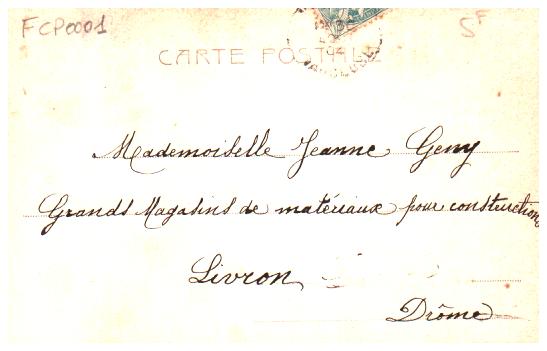 FCP0001
5F
CARTE POSTALE
VAUCLUSE
Mademoiselle Jeanne Geny
Grands Magasins de matériaux pour constructions
Livron
Drôme